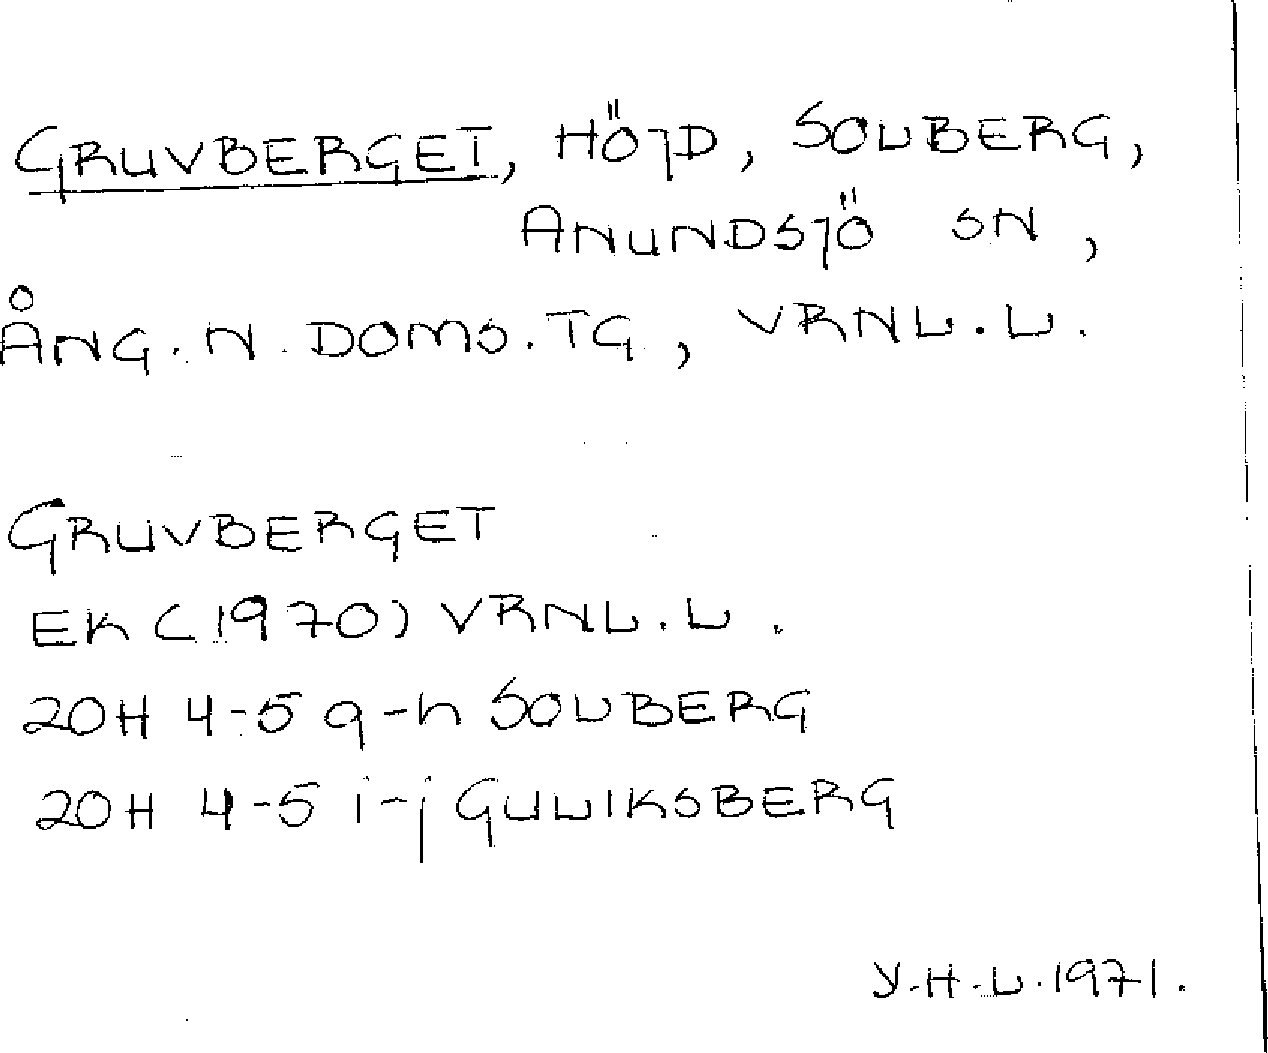 GRUVBERGET, HÖJD, SOLBERG,
ANUNDSJÖ SN,
ÅNG. N. DOMS. TG., VRNL. L.
GRUVBERGET
EK (1970) VRNL. L.
20H 4-5 g-h SOLBERG
20H 4-5 i-j GULLIKSBERG
Y.H.L. 1971.